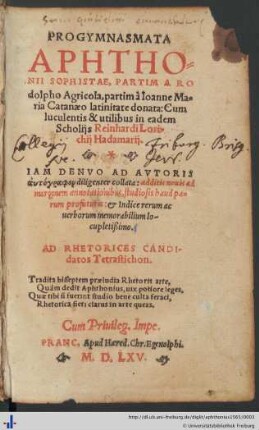 PROGYMNASMATA
APHTHO-
NII SOPHISTAE, PARTIM A RO
dolpho Agricola, partim à Ioanne Ma-
ria Catanæo latinitate donata: Cum
luculentis & utilibus in eadem
Scholijs Reinhardi Lori-
chij Hadamarij.
Collegij Friburg. Brisg.
IAM DENVO AD AVTORIS
αὐτόγραφον diligenter collata: additis nouis ad
marginem annotationibus, studiosis haud pa-
rum profuturis: & Indice rerum ac
uerborum memorabilium lo-
cupletißimo.
AD RHETORICES CANDI-
datos Tetrastichon.
Tradita bisseptem præludia Rhetoris arte,
Quàm dedit Aphthonius, uix potiore leges,
Quæ tibi si fuerint studio bene culta feraci,
Rhetorica fieri clarus in arte queas.
Cum Priuileg. Impe.
FRANC. Apud Hæred. Chr. Egnolphi.
M. D. LXV.
http://dl.ub.uni-freiburg.de/diglit/aphthonius1565/0003
© Universitätsbibliothek Freiburg